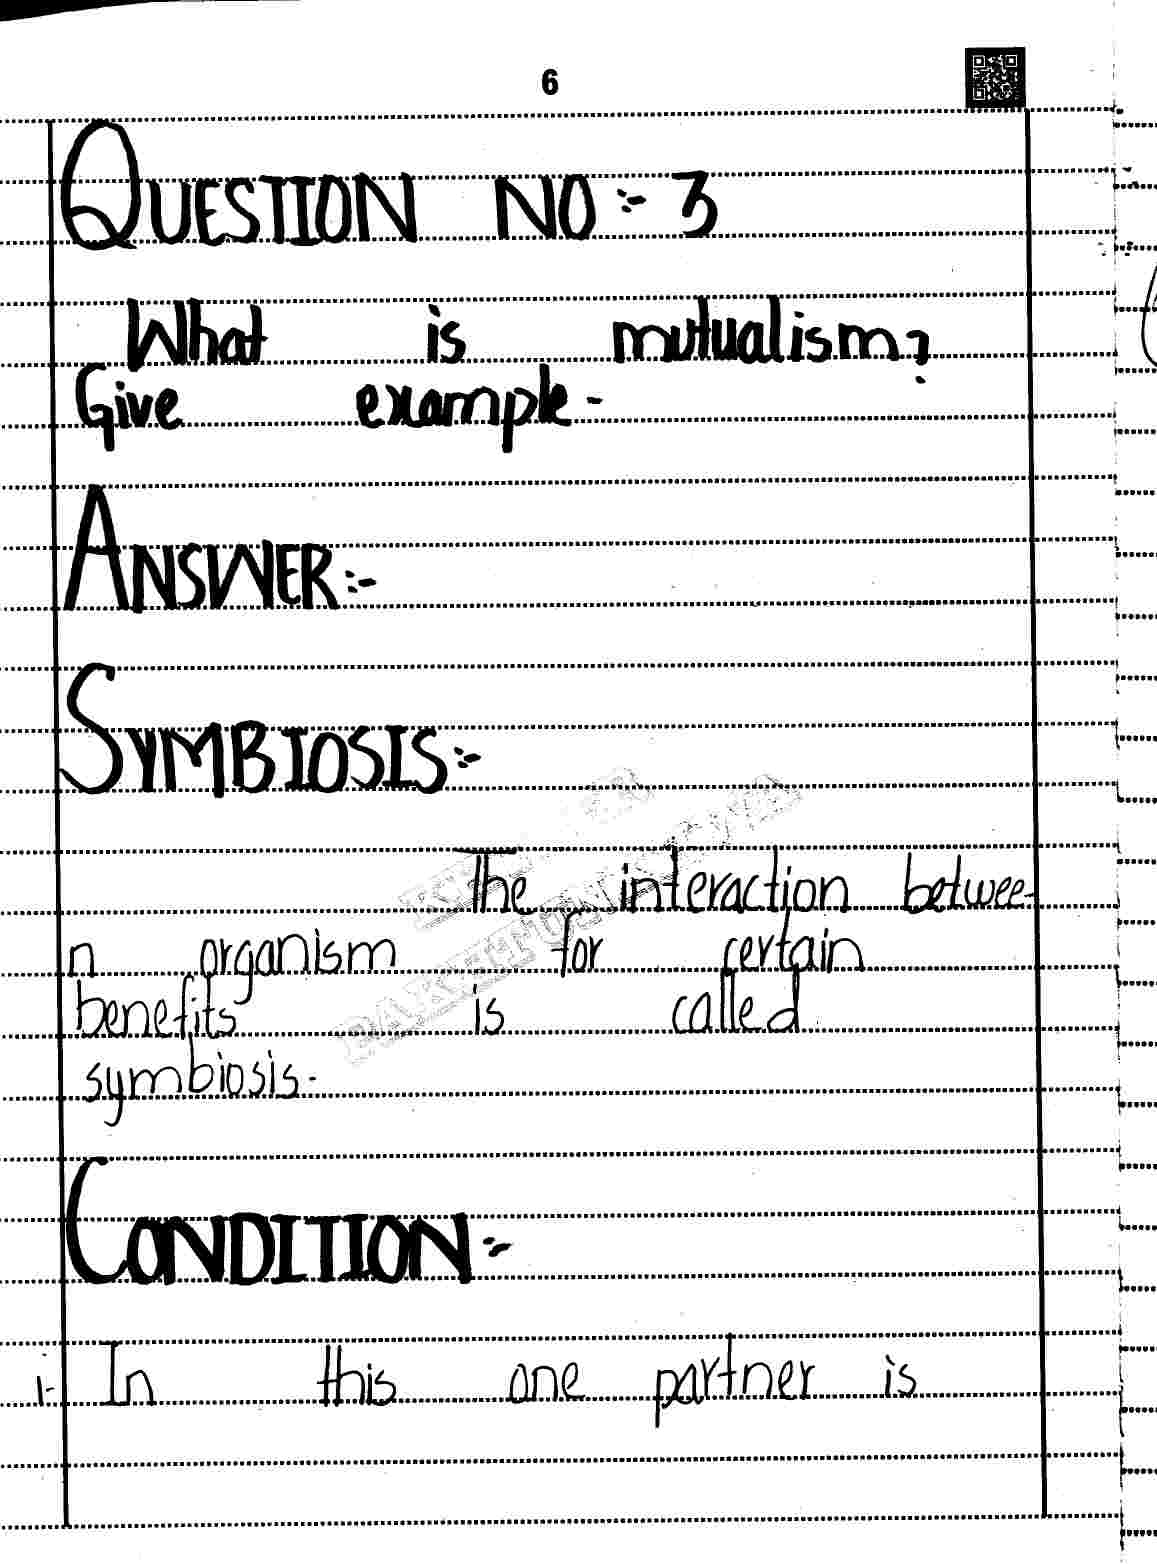 6
QUESTION NO:- 3
What is mutualism?
Give example-
ANSWER:-
SYMBIOSIS:-
The interaction betwee-
n organism for certain
benefits is called
symbiosis.
CONDITION:-
1- In this one partner is